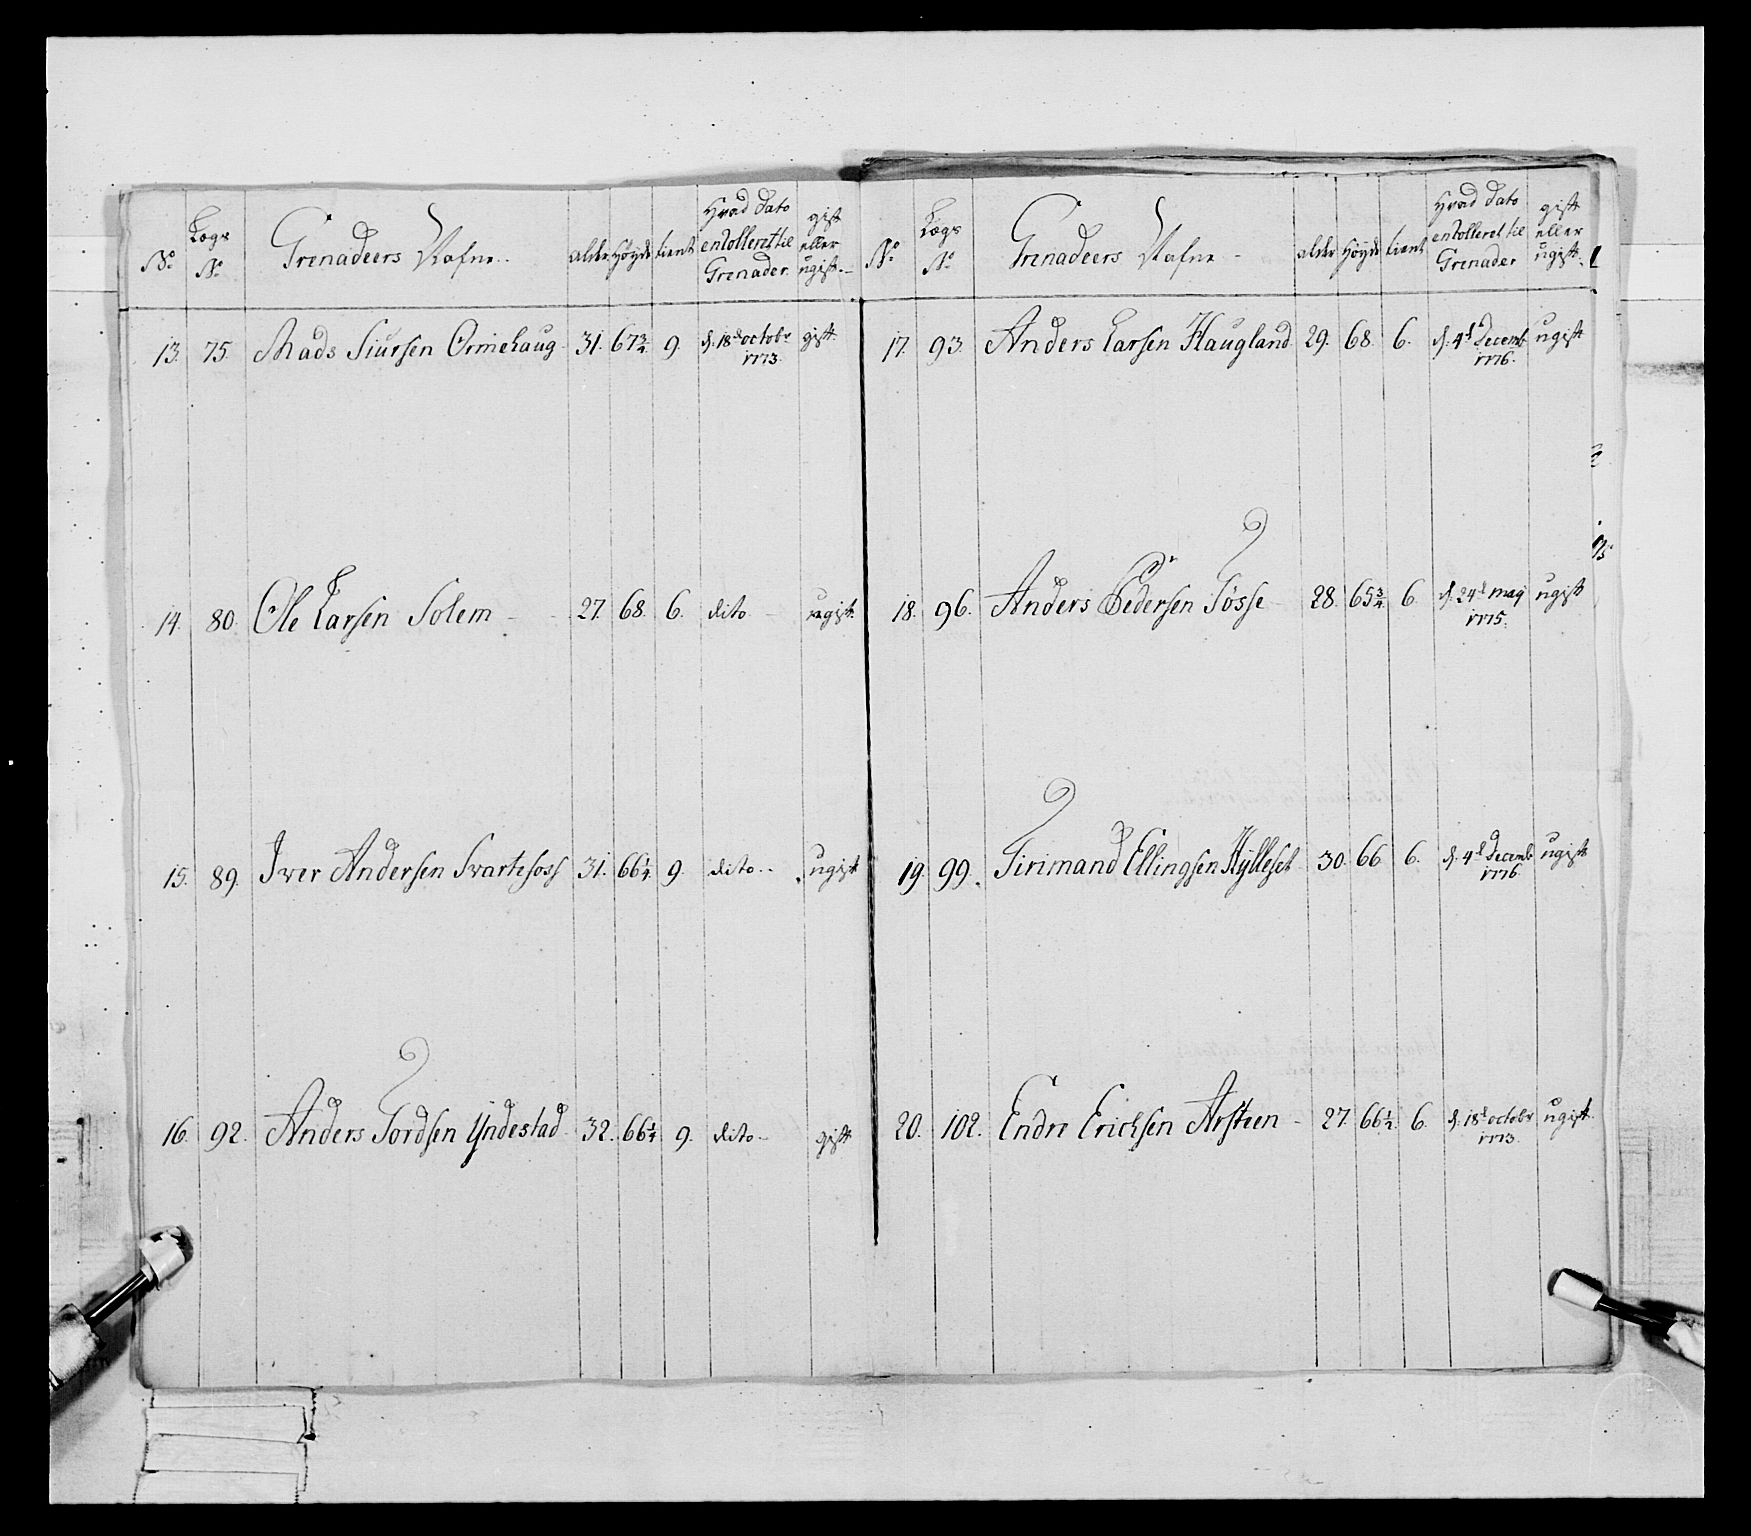 No.
Lægs No.
Grenadeers Nafne.
alder.
Høyde
tient
Hvad dato enrolleret til Grenader.
gift eller ugift.
13. 75. Mads Siursen Ormehaug 31. 67 3/4 9. d. 18de octobr 1773. gift.
14. 80. Ole Larsen Solem 27. 68. 6. dito ugift.
15. 89. Iver Andersen Svartefoss 31. 66 1/4 9. dito ugift
16. 92. Anders Tordsen Yndestad 32. 66 1/4 9. dito gift
No.
Lægs No.
Grenadeers Nafne
alder
Høyde
tient
Hvad dato enrolleret til Grenader
gift eller ugift.
17. 93. Anders Larsen Haugland 29. 68. 6. d. 4d Decemb 1776. ugift
18. 96. Anders Pedersen Tøsse 28. 65 3/4 6. d. 24d may 1775. ugift
19 99. Tirimand Ellingsen Hylleset 30. 66 6. d. 4d Decemb 1776 ugift
20. 102. Endre Erichsen Arsteen 27. 66 1/2 6. d. 18d octobr 1773. ugift